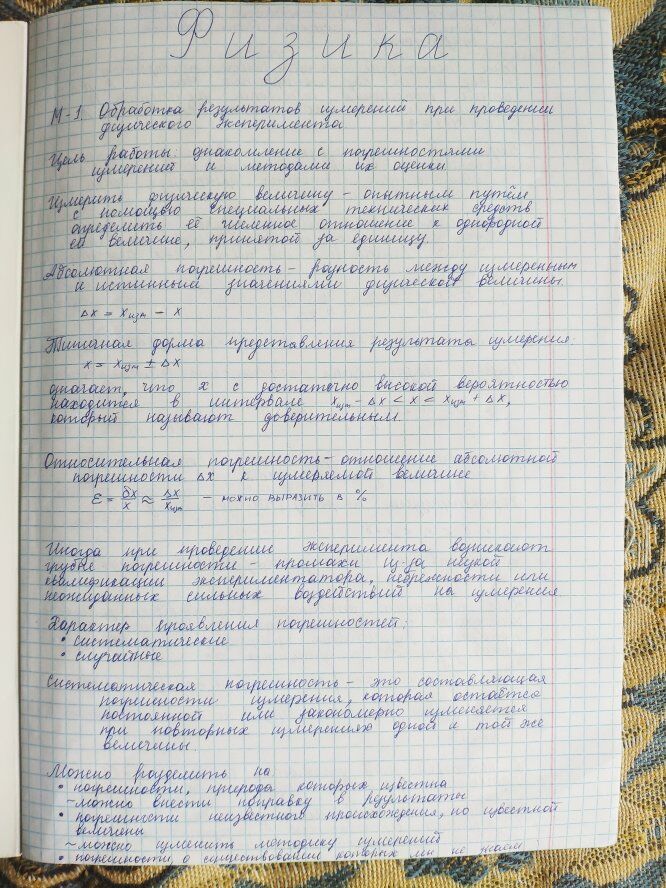 Физика
М-1. Обработка результатов измерений при проведении
физического эксперимента.
Цель работы: ознакомление с погрешностями
измерений и методами их оценки.
Измерить физическую величину – опытным путём
с помощью специальных технических средств
определить её численное отношение к однородной
ей величине, принятой за единицу.
Абсолютная погрешность – разность между измеренным
и истинным значениями физической величины.
Δx = xизм – x
Типичная форма представления результаты измерения:
x = xизм ± Δx
означает, что x с достаточно высокой вероятностью
находится в интервале xизм - Δx < x < xизм + Δx,
который называют доверительным.
Относительная погрешность – отношение абсолютной
погрешности Δx к измеряемой величине
ε = δx/x ≈ Δx/xизм – можно выразить в %
Иногда при проведении эксперимента возникают
грубые погрешности – промахи из-за низкой
квалификации экспериментатора, небрежности или
неожиданных сильных воздействий на измерения.
Характер проявления погрешностей:
• систематические
• случайные
Систематическая погрешность – это составляющая
погрешности измерения, которая остаётся
постоянной или закономерно изменяется
при повторных измерениях одной и той же
величины.
Можно разделить на
• погрешности, природа которых известна
~ можно внести поправку в результаты
• погрешности неизвестного происхождения, но известной
величины
~ можно изменить методику измерений
• погрешности о существовании которых мы не знаем